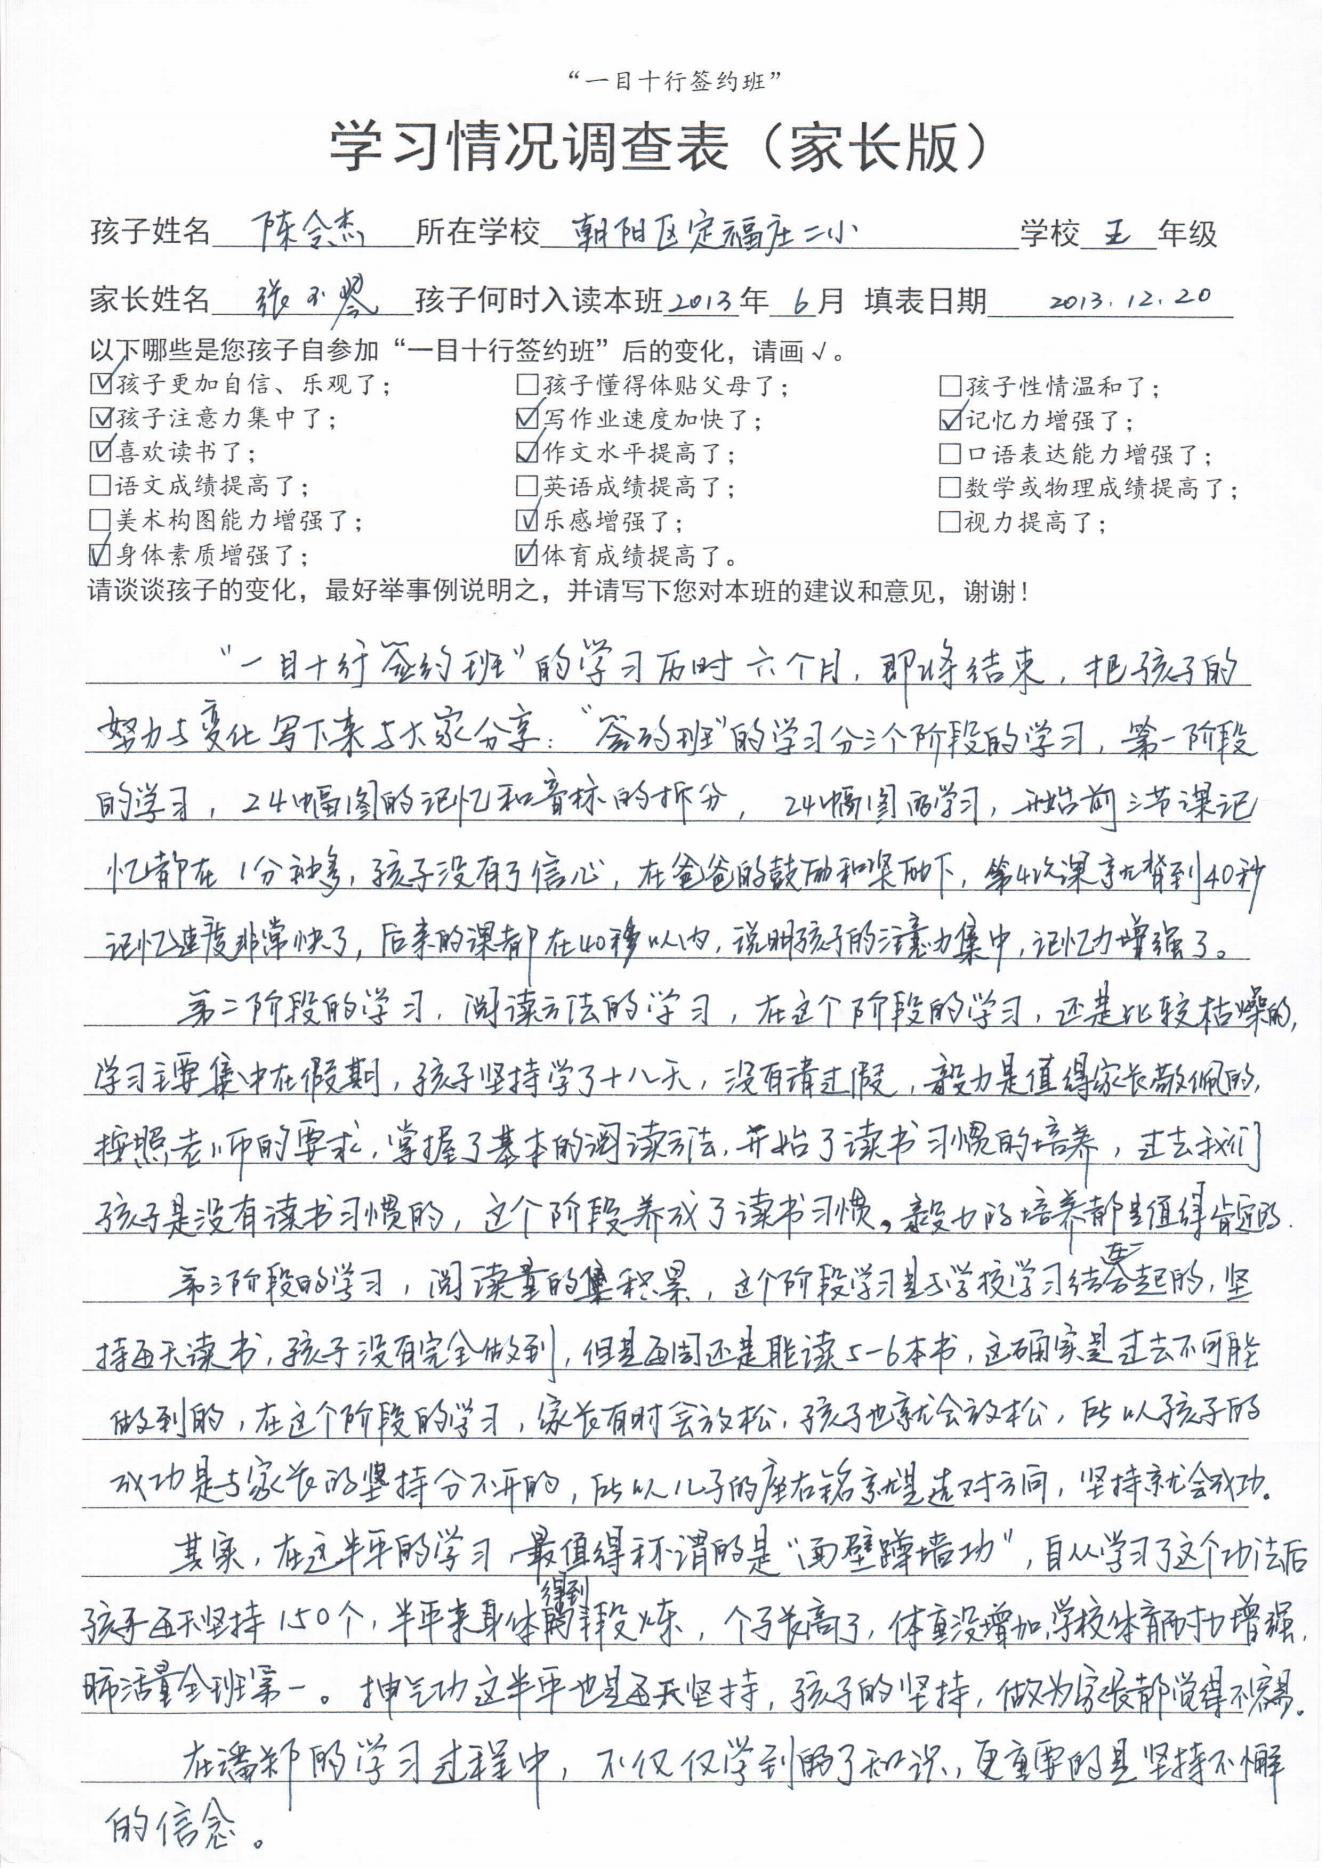 “一目十行签约班”
学习情况调查表（家长版）
孩子姓名 陈令杰 所在学校 朝阳区定福庄二小 学校 五 年级
家长姓名 张不琴 孩子何时入读本班 2013 年 6 月 填表日期 2013.12.20
以下哪些是您孩子自参加“一目十行签约班”后的变化，请画√。
☑孩子更加自信、乐观了； □孩子懂得体贴父母了； □孩子性情温和了；
☑孩子注意力集中了； ☑写作业速度加快了； ☑记忆力增强了；
☑喜欢读书了； ☑作文水平提高了； □口语表达能力增强了；
□语文成绩提高了； □英语成绩提高了； □数学或物理成绩提高了；
□美术构图能力增强了； ☑乐感增强了； □视力提高了；
☑身体素质增强了； ☑体育成绩提高了。
请谈谈孩子的变化，最好举事例说明之，并请写下您对本班的建议和意见，谢谢！
“一目十行签约班”的学习历时六个月，即将结束，把孩子的
努力与变化写下来与大家分享：“签约班”的学习分三个阶段的学习，第一阶段
的学习，24幅图的记忆和音标的拆分，24幅图的学习，开始前三节课记
忆都在1分钟多，孩子没有了信心，在爸爸的鼓励和奖励下，第4次课就背到40秒
记忆速度非常快了，后来的课都在40秒以内，说明孩子的注意力集中，记忆力增强了。
第二阶段的学习，阅读方法的学习，在这个阶段的学习，还是比较枯燥的，
学习主要集中在假期，孩子坚持学了十八天，没有请过假，毅力是值得家长敬佩的，
按照老师的要求，掌握了基本的阅读方法，开始了读书习惯的培养，过去我们
孩子是没有读书习惯的，这个阶段养成了读书习惯。毅力的培养都是值得肯定的.
第三阶段的学习，阅读量的积累，这个阶段学习是与学校学习结合在一起的，坚
持每天读书，孩子没有完全做到，但是每周还是能读5-6本书，这确实是过去不可能
做到的，在这个阶段的学习，家长有时会放松，孩子也就会放松，所以孩子的
成功是与家长的坚持分不开的，所以儿子的座右铭就是选对方向，坚持就会成功。
其实，在这半年的学习，最值得称谓的是“面壁蹲墙功”，自从学习了这个功法后
孩子每天坚持150个，半年来身体得到锻炼，个子长高了，体重没增加，学校体育耐力增强，
肺活量全班第一。抻气功这半年也是每天坚持，孩子的坚持，做为家长都觉得不容易。
在潘郑的学习过程中，不仅仅学到的了知识，更重要的是坚持不懈
的信念。